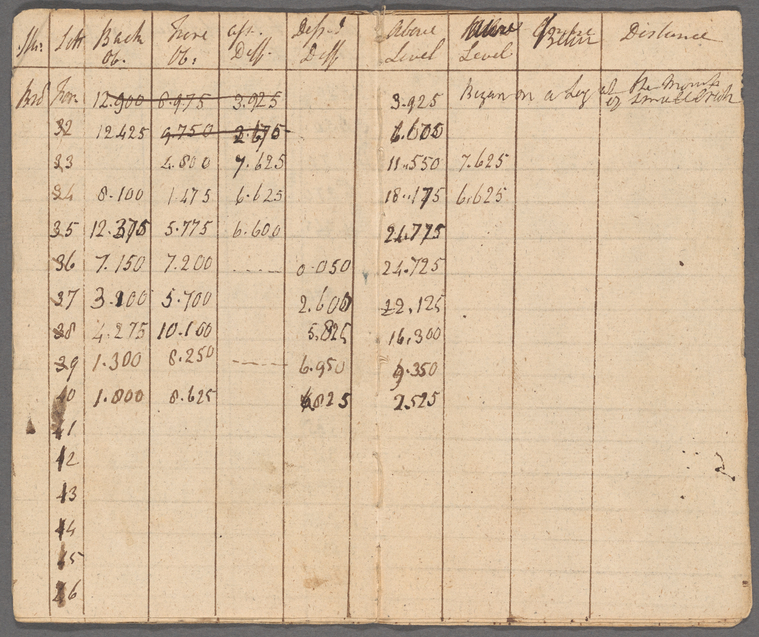 Back Fore Diff. Diff Above Level Above Level Distance
Ob. Ob:
12.900 8.975 3.925 3.925 Began on a Log at the Mouth of
32 12.425 9.750 2.675 6.600
33 4.800 7.625 11.550 7.625
34 8.100 1.475 6.625 18.175 6.625
35 12.375 5.775 6.600 24.775
36 7.150 7.200 0.050 24.725
37 3.100 5.700 2.600 22.125
38 4.275 10.100 5.825 16.300
39 1.300 8.250 6.950 9.350
40 1.800 8.625 6825 2.525
41
42
43
44
45
46